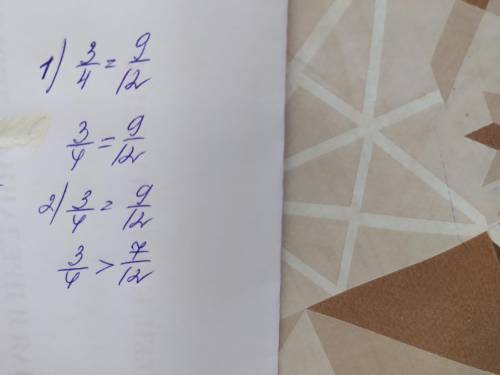 1) 3/4 = 9/12
3/4 = 9/12
2) 3/4 = 9/12
3/4 > 7/12